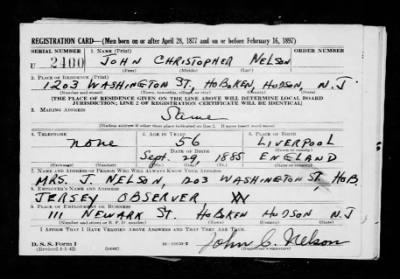 REGISTRATION CARD—(Men born on or after April 28, 1877 and on or before February 16, 1897)
SERIAL NUMBER 1. NAME (Print) ORDER NUMBER
U 2400 JOHN CHRISTOPHER NELSON
(First) (Middle) (Last)
2. PLACE OF RESIDENCE (Print)
1203 WASHINGTON ST, HOBOKEN, HUDSON, N.J
(Number and street) (Town, township, village, or city) (County) (State)
[THE PLACE OF RESIDENCE GIVEN ON THE LINE ABOVE WILL DETERMINE LOCAL BOARD
JURISDICTION; LINE 2 OF REGISTRATION CERTIFICATE WILL BE IDENTICAL]
3. MAILING ADDRESS
Same
[Mailing address if other than place indicated on line 2. If same insert word same]
4. TELEPHONE 5. AGE IN YEARS 6. PLACE OF BIRTH
none 56 LIVERPOOL
DATE OF BIRTH
Sept. 29, 1885 ENGLAND
7. NAME AND ADDRESS OF PERSON WHO WILL ALWAYS KNOW YOUR ADDRESS
MRS. J. NELSON, 1203 WASHINGTON ST, HOB.
8. EMPLOYER'S NAME AND ADDRESS
JERSEY OBSERVER
9. PLACE OF EMPLOYMENT OR BUSINESS
111 NEWARK ST. HOBOKEN HUDSON N.J
I AFFIRM THAT I HAVE VERIFIED ABOVE ANSWERS AND THAT THEY ARE TRUE.
D. S. S. Form 1
John C. Nelson